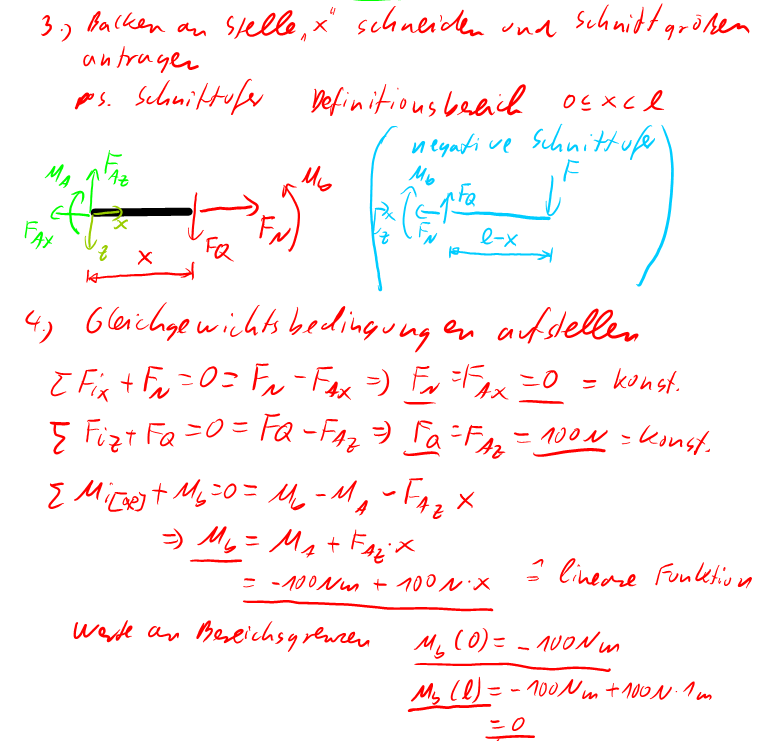 3.) Balken an Stelle „x“ schneiden und Schnittgrößen
antragen
pos. Schnittufer Definitionsbereich 0 ≤ x < l
( negative Schnittufer )
M_A F_Az M_b M_b F_Q F
F_Ax x z F_Q F_N x z F_N
x l-x
4.) Gleichgewichtsbedingungen aufstellen
Σ F_ix + F_N = 0 = F_N - F_Ax => F_N = F_Ax = 0 = konst.
Σ F_iz + F_Q = 0 = F_Q - F_Az => F_Q = F_Az = 100N = konst.
Σ M_i[QP] + M_b = 0 = M_b - M_A - F_Az x
=> M_b = M_A + F_Az · x
= -100Nm + 100N · x ≙ lineare Funktion
Werte an Bereichsgrenzen M_b (0) = -100Nm
M_b (l) = -100Nm + 100N · 1m
= 0